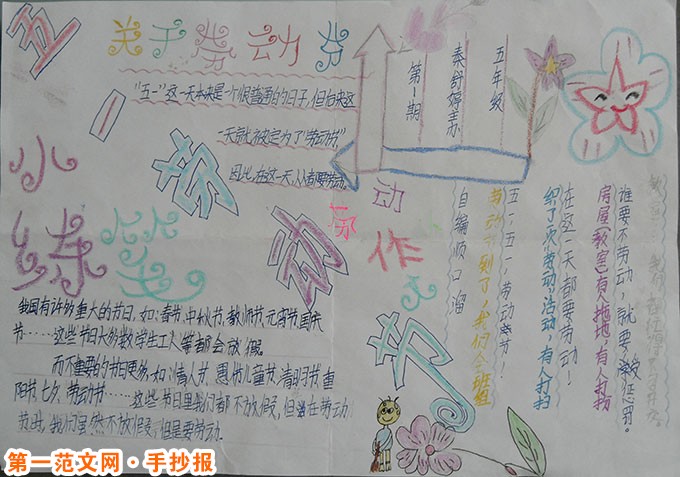 五一劳动节
关于劳动节
"五一"这一天本来是一个很普通的日子,但后来这
一天就被定为了"劳动节"
因此,在这一天,人人都要劳动。
第1期
秦舒婷主办
五年级
小练笔
我国有许多重大的节日,如:春节,中秋节,教师节,元宵节,国庆
节……这些节日大多数学生工人等都会放假。
而不重要的节日更多,如:情人节,愚书儿童节,清明节,重
阳节,七夕,劳动节……这些节日里我们都不放假,但在劳动
节时,我们虽然不放假,但是要劳动。
动作
自编顺口溜
五一五一,劳动节!
劳动节到了,我们会班组
织了一次劳动活动,有人打扫
在这一天都要劳动!
房屋(教室)有人拖地,有人打扮
谁要不劳动,就要
惩罚。
第一范文网·手抄报